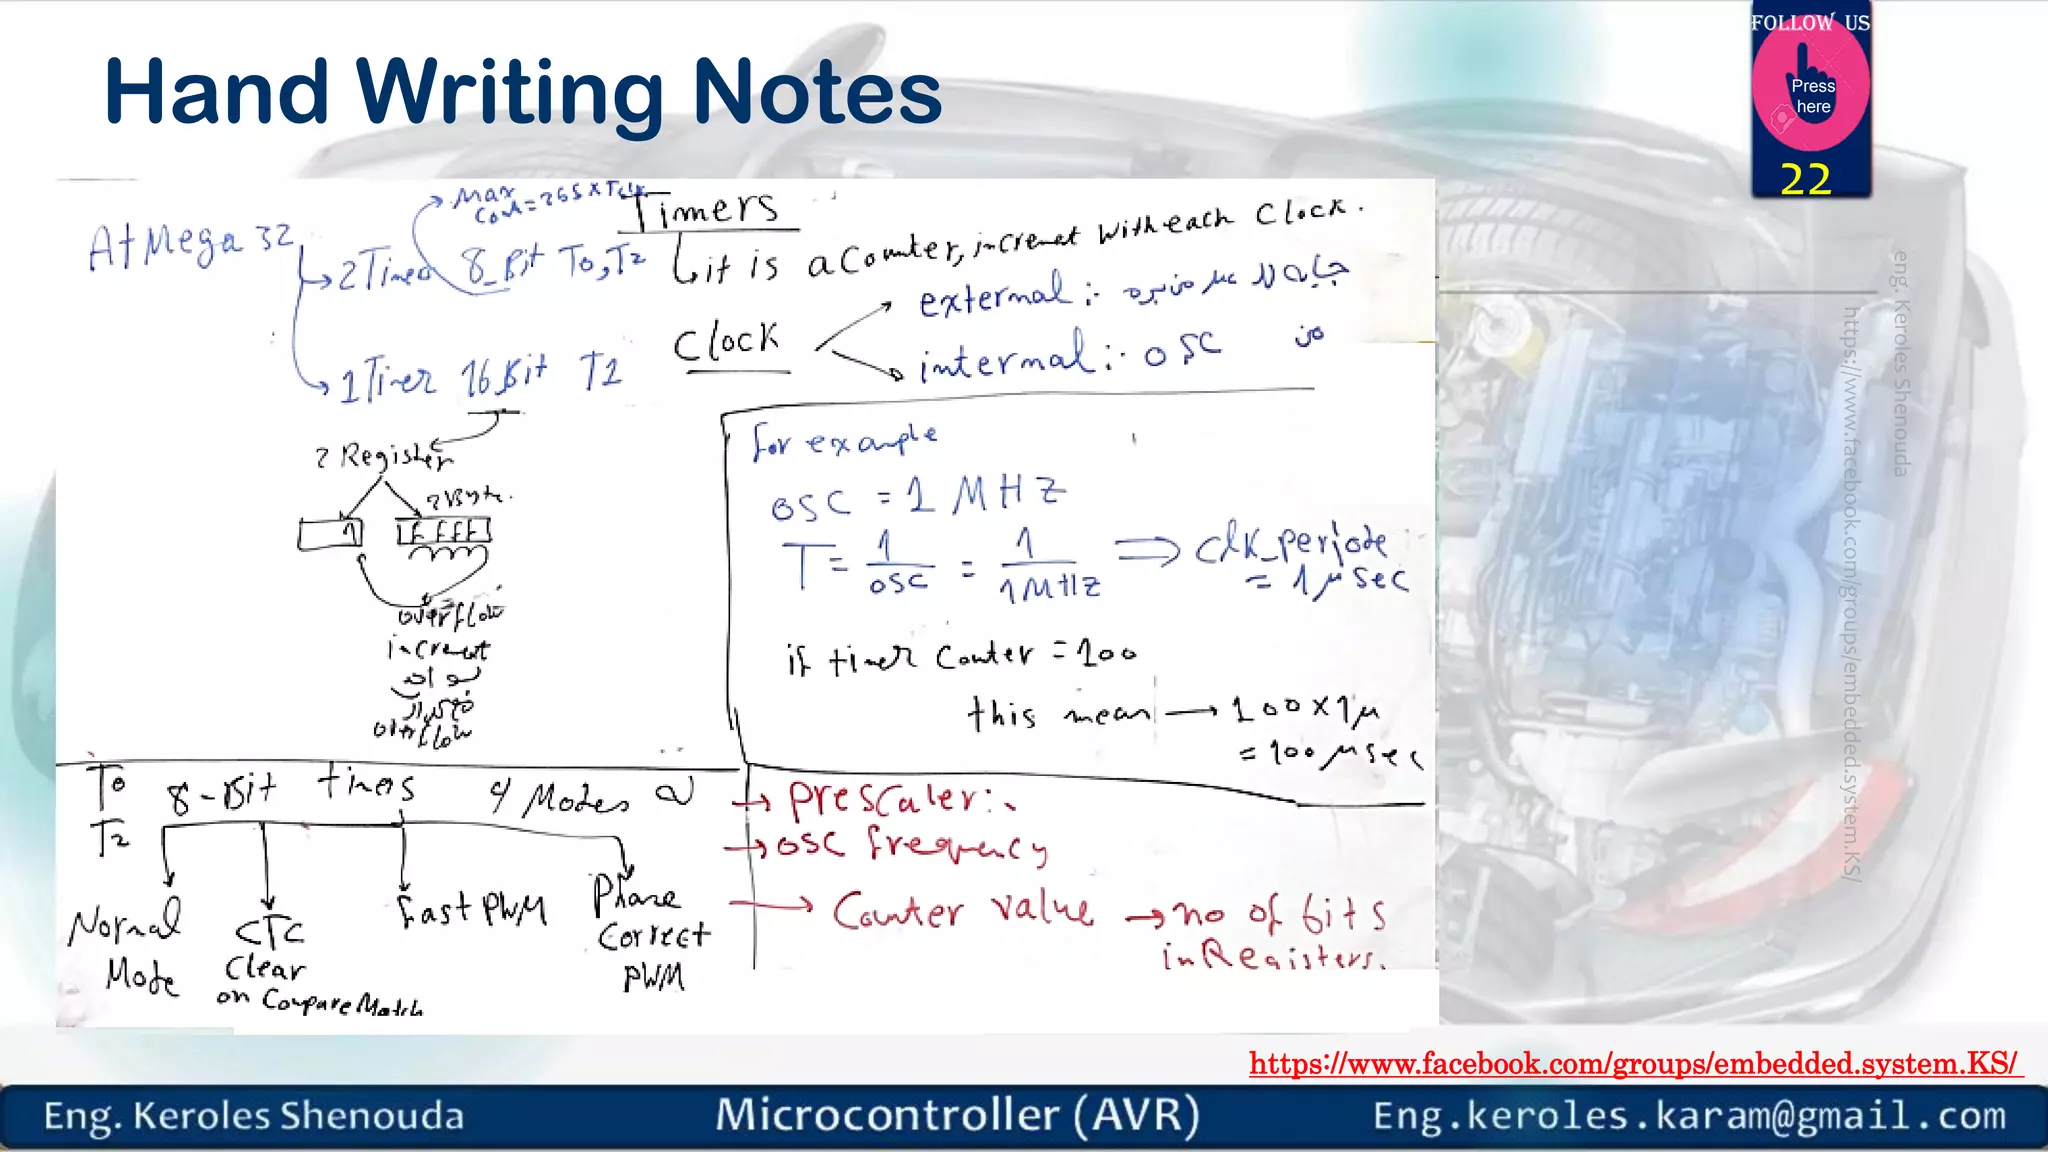 Hand Writing Notes
FOLLOW US
Press
here
22
Timers
it is a Counter, increment With each Clock.
AtMega32
Max
Count = 255 x Tclk
2 Timer 8_Bit T0, T2
1 Timer 16 Bit T1
Clock
external :-
internal :- osc من
2 Register
2 Byte.
1
F F F F
overflow
increment
overflow
for example
osc = 1 MHZ
T = 1/osc = 1/1MHZ ⇒ clk_periode
= 1 μ sec
if timer Counter = 100
this mean → 100 x 1μ
= 100 μ sec
T0
T2
8-Bit timers 4 Modes
Normal
Mode
CTC
Clear
on Compare Match
Fast PWM
Phase
Correct
PWM
→ Prescaler :-
→ osc frequency
→ Counter value → no of bits
in Registers.
eng. Keroles Shenouda
https://www.facebook.com/groups/embedded.system.KS/
https://www.facebook.com/groups/embedded.system.KS/
Eng. Keroles Shenouda
Microcontroller (AVR)
Eng.keroles.karam@gmail.com